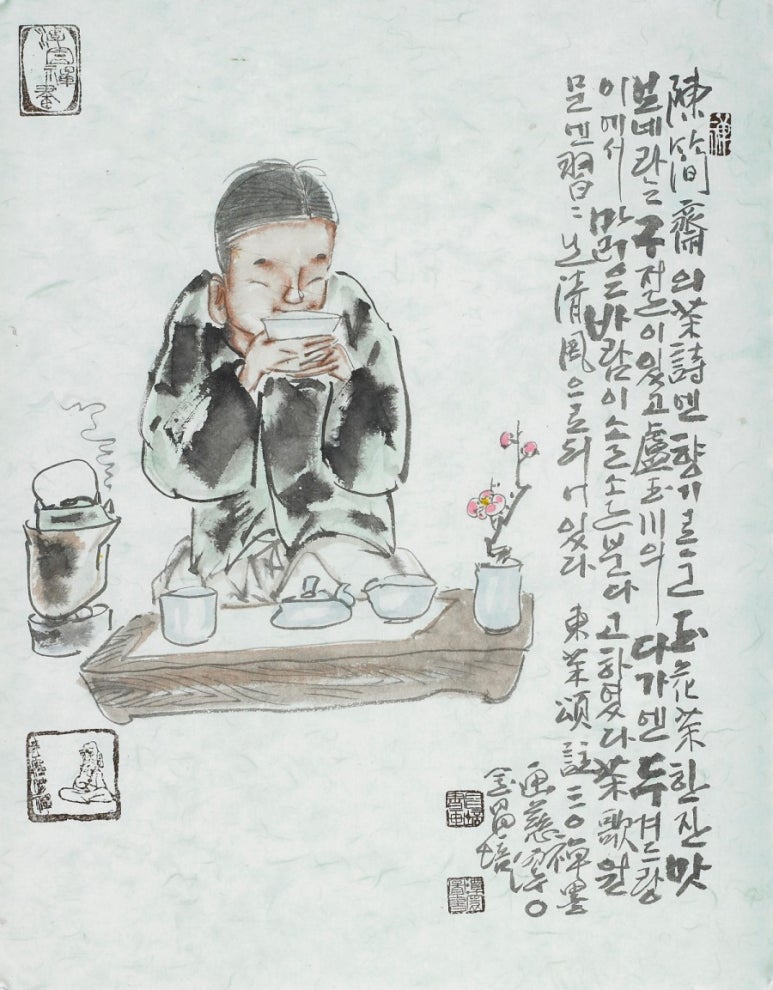 陳簡齋의 茶詩엔 향기로운 玉花茶 한잔 맛
보네라는 구절이 있고 盧玉川의 다가엔 두겨드랑
이에서 맑은 바람이 솔솔 분다고 하였다 茶歌 원
문엔 習〻生清風으로 되어 있다 東茶頌 註三〇 禅墨
画慈
金昌培